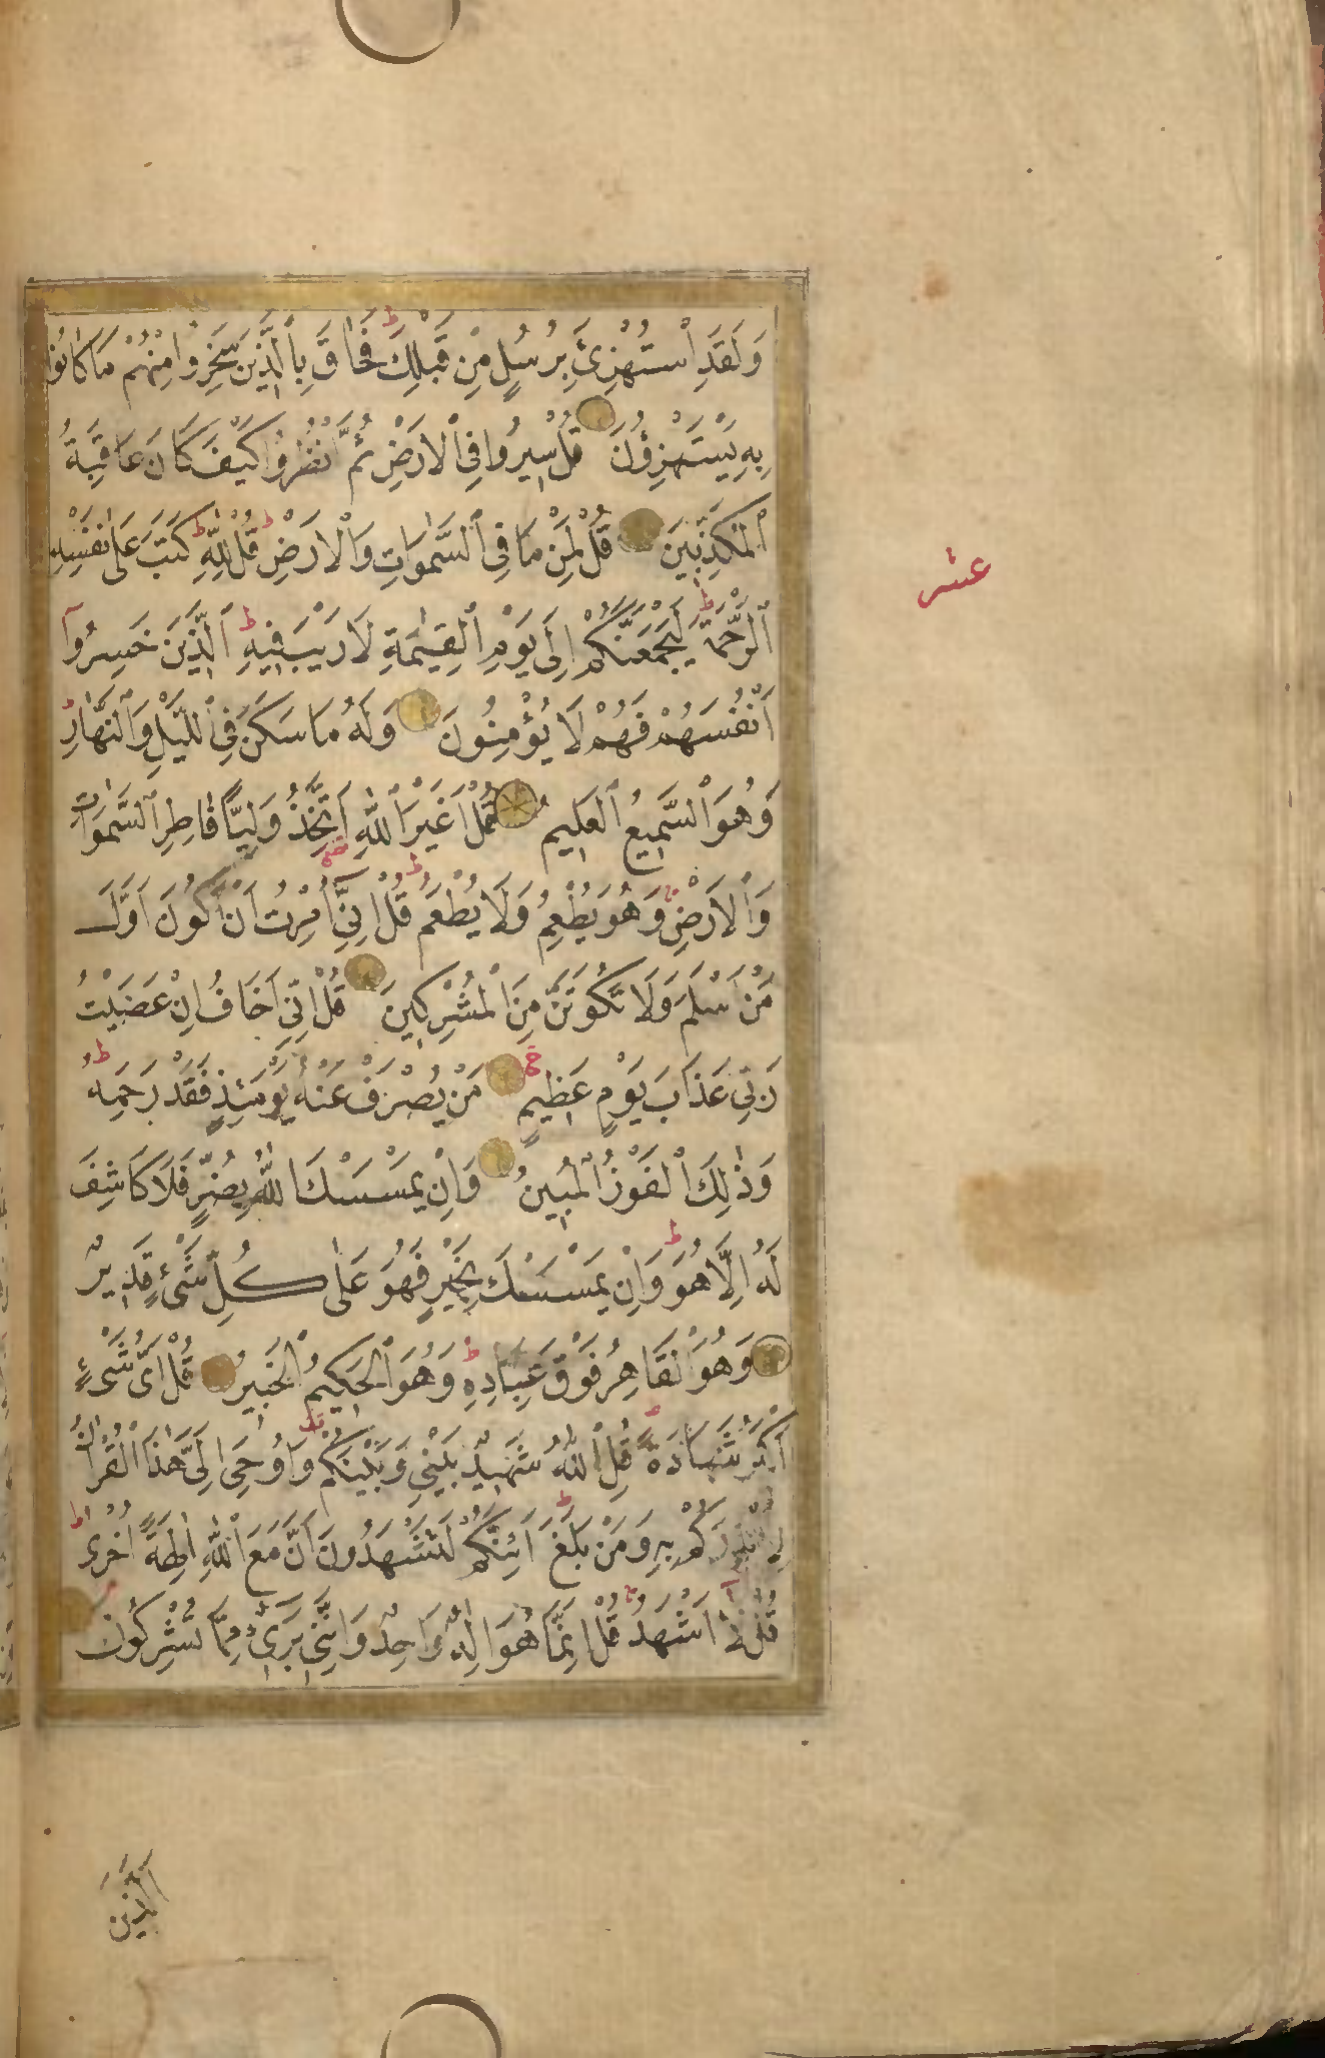 وَلَقَدِ ٱسْتُهْزِئَ بِرُسُلٍ مِنْ قَبْلِكَ ط فَحَاقَ بِٱلَّذِينَ سَخِرُوا مِنْهُمْ مَا كَانُوا
بِهِ يَسْتَهْزِؤُنَ قُلْ سِيرُوا فِي ٱلْارَضِ ثُمَّ ٱنْظُرُوا كَيْفَ كَانَ عَاقِبَةُ
ٱلْمُكَذِّبِينَ قُلْ لِمَنْ مَا فِي ٱلسَّمٰوَاتِ وَٱلْارَضِ ط قُلْ لِلّٰهِ ط كَتَبَ عَلٰى نَفْسِهِ
عشر
ٱلرَّحْمَةَ ط لَيَجْمَعَنَّكُمْ اِلَى يَوْمِ ٱلْقِيٰمَةِ لَا رَيْبَ فِيهِ ط ٱلَّذِينَ خَسِرُوآ
اَنْفُسَهُمْ فَهُمْ لَا يُؤْمِنُونَ وَلَهُ مَا سَكَنَ فِي ٱللَّيْلِ وَٱلنَّهَارِ ط
وَهُوَ ٱلسَّمِيعُ ٱلْعَلِيمُ قُلْ اَغَيْرَ ٱللّٰهِ اَتَّخِذُ وَلِيًّا فَاطِرِ ٱلسَّمٰوَاتِ
وَٱلْارَضِ وَهُوَ يُطْعِمُ وَلَا يُطْعَمُ ط قُلْ اِنِّي اُمِرْتُ اَنْ اَكُونَ اَوَّلَ
مَنْ اَسْلَمَ وَلَا تَكُونَنَّ مِنَ ٱلْمُشْرِكِينَ قُلْ اِنِّي اَخَافُ اِنْ عَصَيْتُ
رَبِّي عَذَابَ يَوْمٍ عَظِيمٍ مَنْ يُصْرَفْ عَنْهُ يَوْمَئِذٍ فَقَدْ رَحِمَهُ ط
وَذٰلِكَ ٱلْفَوْزُ ٱلْمُبِينُ وَاِنْ يَمْسَسْكَ ٱللّٰهُ بِضُرٍّ فَلَا كَاشِفَ
لَهُ اِلَّا هُوَ ط وَاِنْ يَمْسَسْكَ بِخَيْرٍ فَهُوَ عَلٰى كُلِّ شَيْءٍ قَدِيرٌ
وَهُوَ ٱلْقَاهِرُ فَوْقَ عِبَادِهِ ط وَهُوَ ٱلْحَكِيمُ ٱلْخَبِيرُ قُلْ اَيُّ شَيْءٍ
اَكْبَرُ شَهَادَةً قُلِ ٱللّٰهُ شَهِيدٌ بَيْنِي وَبَيْنَكُمْ وَاُوحِيَ اِلَيَّ هٰذَا ٱلْقُرْاٰنُ
لِاُنْذِرَكُمْ بِهِ وَمَنْ بَلَغَ ط اَئِنَّكُمْ لَتَشْهَدُونَ اَنَّ مَعَ ٱللّٰهِ اٰلِهَةً اُخْرٰى ط
قُلْ لَآ اَشْهَدُ قُلْ اِنَّمَا هُوَ اِلٰهٌ وَاحِدٌ وَاِنَّنِي بَرِيءٌ مِمَّا تُشْرِكُونَ
اَلَّذِينَ